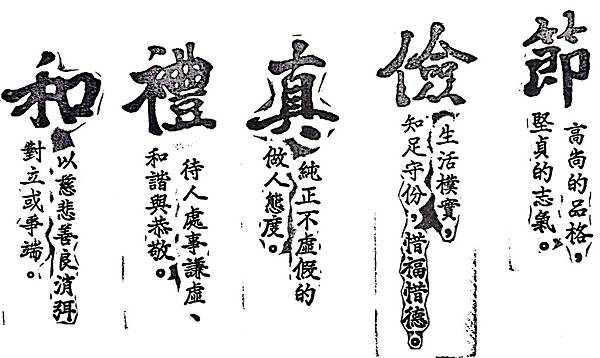 節
高尚的品格，
堅貞的志氣。
儉
生活樸實，
知足守份，惜福惜德。
真
純正不虛假的
做人態度。
禮
待人處事謙虛、
和諧與恭敬。
和
以慈悲善良消弭
對立或爭端。